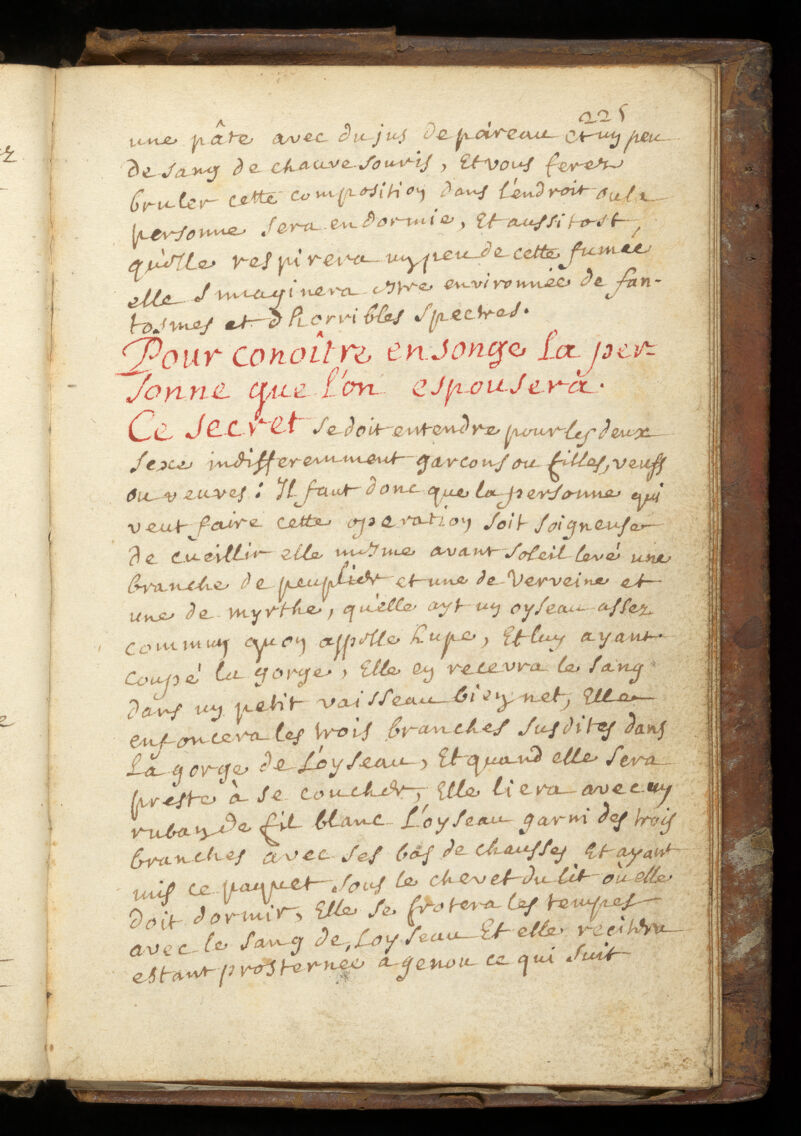 225
une pâte avec du jus de paireau et un peu
de sang de chauve souris, Et vous ferez
bruler cette composition dans l'endroit ou la
personne sera endormie, Et aussitost
qu'elle respirera un peu de cette fumée
elle s'imaginera estre environnée de fan-
tosmes et d'horribles spectres.
Pour conoître en songe la per-
sonne que l'on espousera.
Ce secret se doit entendre pour les deux
sexe indifferemment garcons ou filles, veufs
ou veuves : Il faut donc que la personne qui
veut faire cette operation soit soigneuse
de cueillir elle mesme avant soleil levé une
branche de peuplier et une de Verveine et
une de myrthe, qu'elle ayt un oyseau assez
commun qu'on appelle hupe, Et luy ayant
coupé la gorge, Elle en recevra le sang
dans un petit vaisseau bien net, Elle
enfoncera les trois branches susdites dans
La gorge de L'oyseau, Et quand elle sera
preste à se coucher, Elle liera avec un
ruban de fil blanc L'oyseau garni des trois
branches avec ses bas de chausses Et ayant
mis ce paquet sous le chevet du lit où elle
doit dormir, Elle se frotera les tempes
avec le sang de Loyseau Et elle recitera
estant prosternée a genou ce qui suit